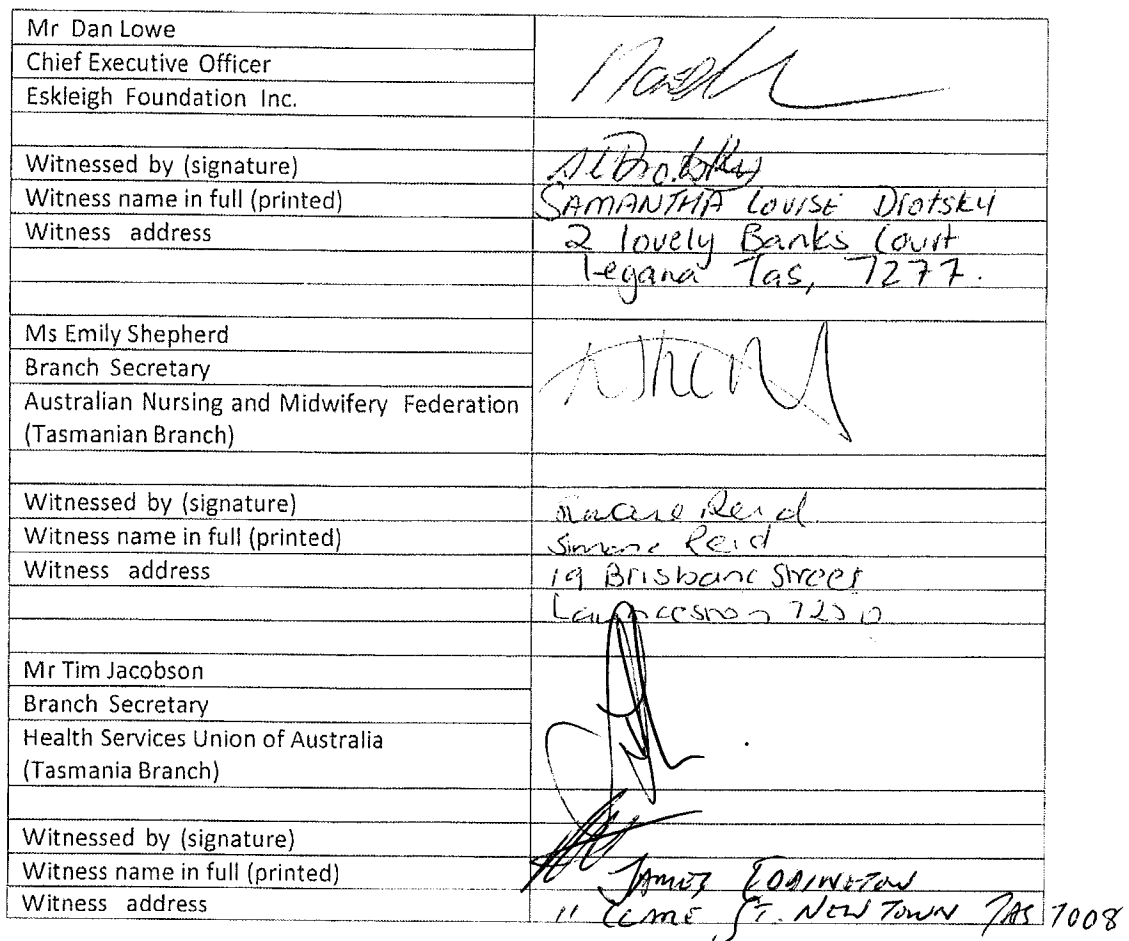 Mr Dan Lowe
Chief Executive Officer
Eskleigh Foundation Inc.
Witnessed by (signature)
Witness name in full (printed) SAMANTHA LOUISE Drotsky
Witness address 2 lovely Banks Court
Legana Tas, 7277.
Ms Emily Shepherd
Branch Secretary
Australian Nursing and Midwifery Federation
(Tasmanian Branch)
Witnessed by (signature) Simone Reid
Witness name in full (printed) Simone Reid
Witness address 19 Brisbane Street
Launceston 7250
Mr Tim Jacobson
Branch Secretary
Health Services Union of Australia
(Tasmania Branch)
Witnessed by (signature)
Witness name in full (printed) JAMES EDDINGTON
Witness address 11 CLARE ST. NEW TOWN TAS 7008